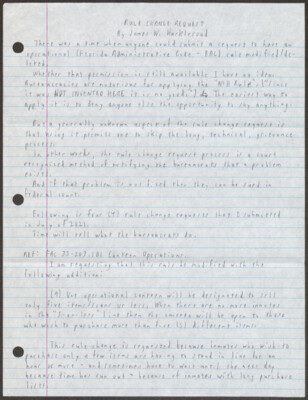 RULE CHANGE REQUEST
By James N. Harkleroad
There was a time when anyone could submit a request to have an
operational (Florida Administrative Code - FAC) rule modified/de-
leted.
Whether that permission is still available I have no idea.
Bureaucrats are notorious for applying the "NIH Rule"
it was NOT INVENTED HERE it is no good. The easiest way to
apply it is to deny anyone else the opportunity to say anything.
But a generally unknown aspect of the rule change request is
that using it permits one to skip the long, technical, grievance
process.
In other words, the rule change request process is a court
recognized method of notifying the bureaucrats that a problem
exists.
And if that problem is not fixed then they can be sued in
federal court.
Following is four (4) rule change requests that I submitted
in July of
Time will tell what the bureaucrats do.
REF: FAC 33-203.101 Canteen Operations.
I am requesting that this rule be modified with the
following addition:
One operational canteen will be designated to sell
only five items or less. When there are no more inmates
in the "5-or-less" line then the canteen will be open to those
who wish to purchase more than five (5) different items.
This rule change is requested because inmates who wish to
purchase only a few items are having to stand in line for an
hour or more - and sometimes have to wait until the next day
because time has run out - because of inmates with long purchase
lists.